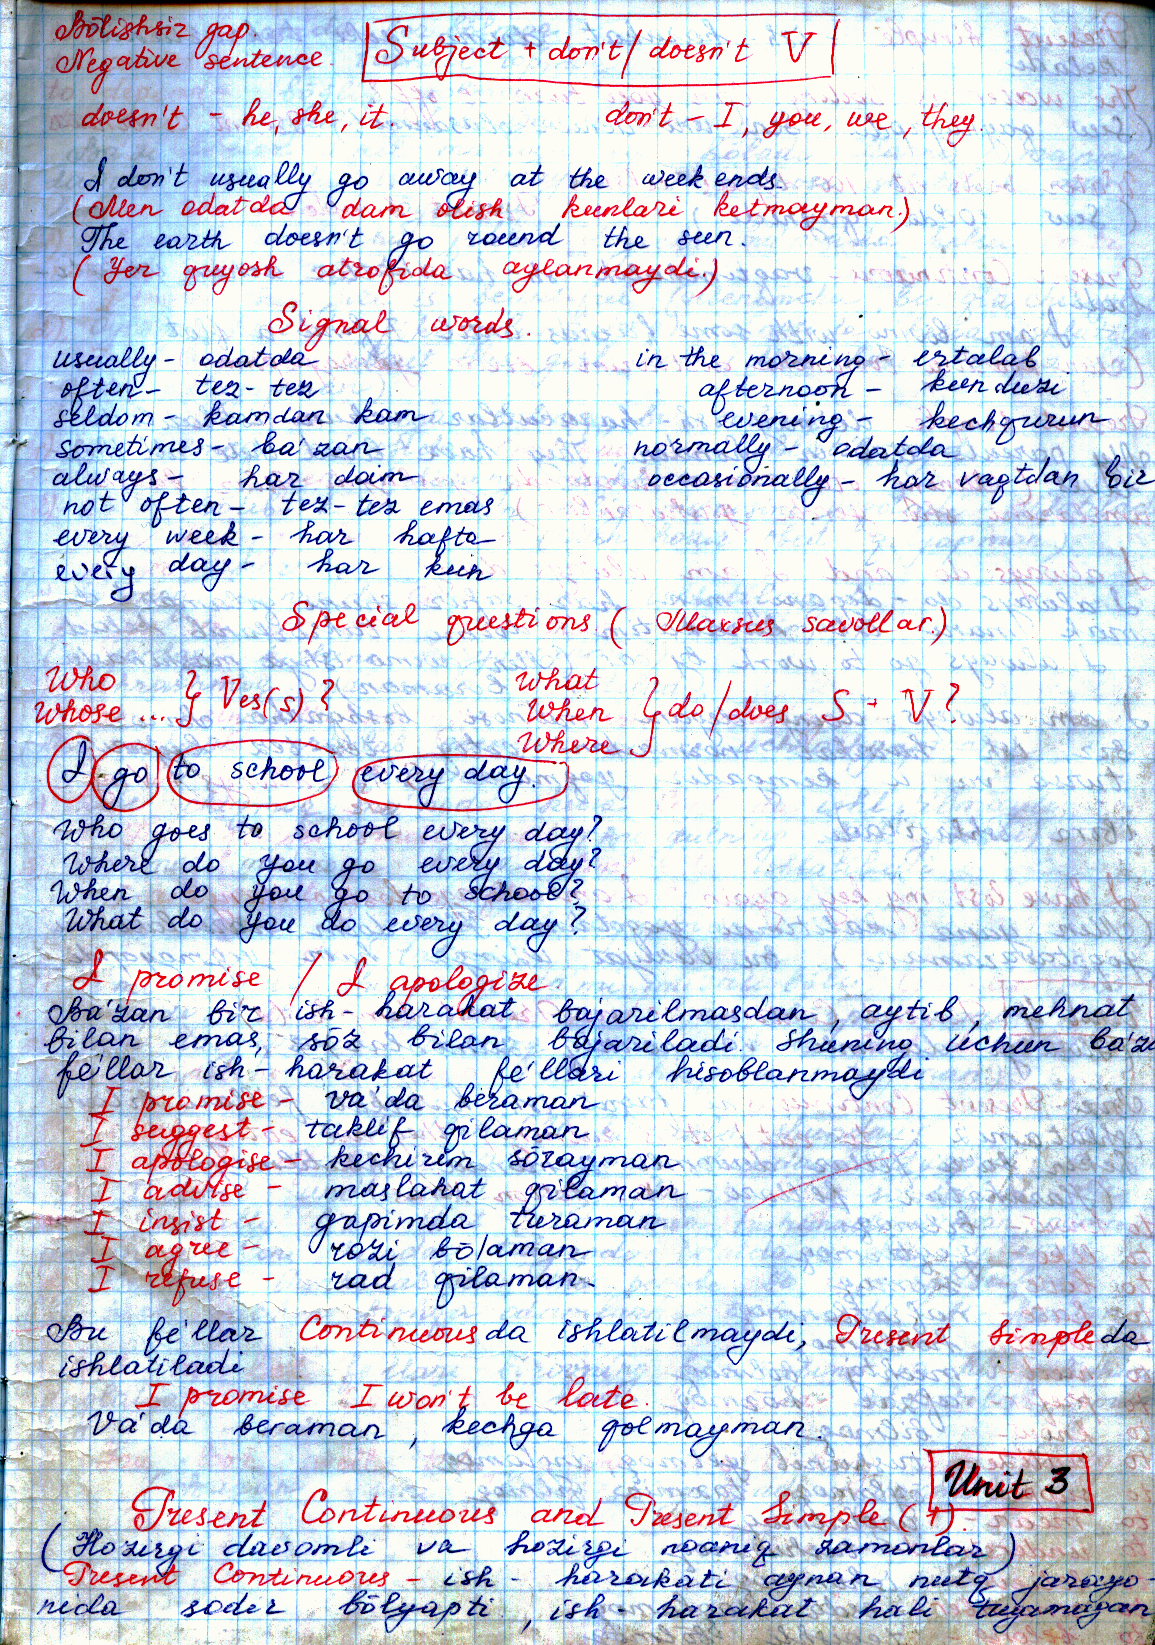 Bo'lishsiz gap.
Negative sentence. Subject + don't/doesn't V
doesn't - he, she, it. don't - I, you, we, they.
I don't usually go away at the week ends.
(Men odatda dam olish kunlari ketmayman.)
The earth doesn't go round the sun.
(Yer quyosh atrofida aylanmaydi.)
Signal words.
usually - odatda in the morning - ertalab
often - tez-tez afternoon - kun duzi
seldom - kamdan kam evening - kechqurun
sometimes - ba'zan normally - odatda
always - har doim occasionally - har vaqtdan bir
not often - tez-tez emas
every week - har hafta
every day - har kun
Special questions (Maxsus savollar.)
Who What
Whose ... } Ves(s)? When } do/does S + V?
Where
I go to school every day.
Who goes to school every day?
Where do you go every day?
When do you go to school?
What do you do every day?
I promise / I apologize.
Ba'zan bir ish-harakat bajarilmasdan, aytib, mehnat
bilan emas, sōz bilan bajariladi. Shuning uchun ba'zi
fe'llar ish-harakat fe'llari hisoblanmaydi
I promise - va'da beraman
I suggest - taklif qilaman
I apologise - kechirim sōrayman
I advise - maslahat qilaman
I insist - gapimda turaman
I agree - rozi bōlaman
I refuse - rad qilaman.
Bu fe'llar Continuousda ishlatilmaydi, Present Simpleda
ishlatiladi
I promise I won't be late.
Va'da beraman, kechga qolmayman.
Unit 3
Present Continuous and Present Simple (1)
(Hozirgi davomli va hozirgi noaniq zamonlar)
Present Continuous - ish-harakati aynan nutq jarayo-
nida sodir bōlyapti, ish-harakat hali tugamagan